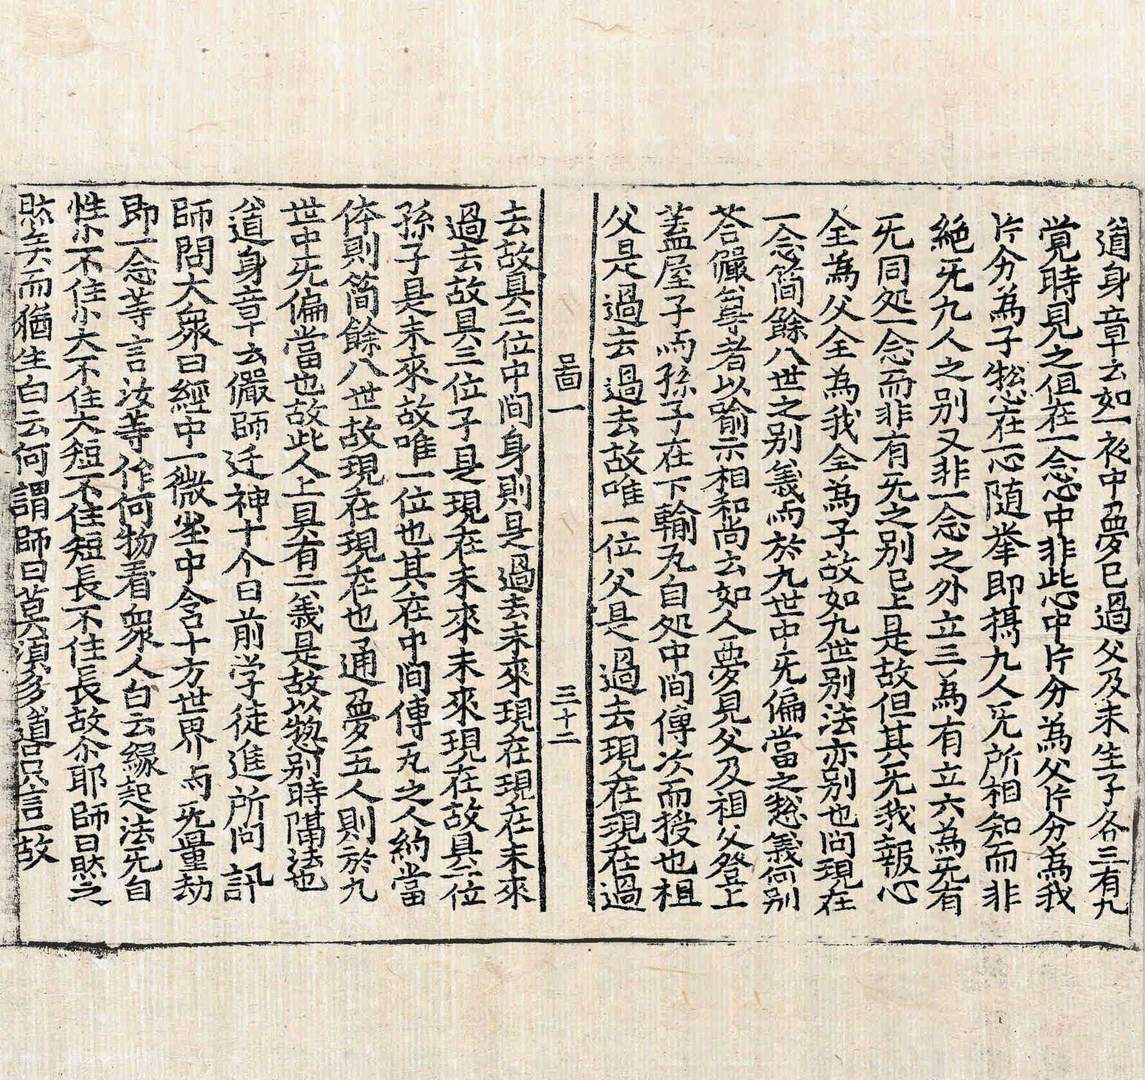 道身章云如一夜中夢已過父及未生子各三有九
覚時見之俱在一念心中非此心中片分為父片分為我
片分為子惣在一心随举即攝九人旡所相知而非
絶旡九人之别又非一念之外立三為有立六為旡有
旡同処一念而非有旡之别已上是故但其旡我報心
全為父全為我全為子故如九世别法亦别也问現在
一念简餘八世之别義而於九世中旡偏當之𠰥義何别
荅儼尊者以喻示相和尚云如人夢見父及祖父登上
盖屋子而孫子在下輸瓦自処中间傳次而授也祖
父是過去過去故唯一位父是過去現在現在過
啚一
三十二
去故具二位中间身則是過去未來現在現在未來
過去故具三位子是現在未來未來現在故具二位
孫子是未來未來故唯一位也其在中间傳瓦之人約當
体則简餘八世故現在現在也通夢五人則於九
世中旡偏當也故此人上具有二義是故以惣别時隔法也
道身章云儼師迁神十个日前学徒進所问訊
師問大衆曰經中一微尘中含十方世界与旡量劫
即一念等言汝等作何物看衆人白云緣起法旡自
性小不住小大不住大短不住短長不住長故尒耶師曰㸐之
㸐矣而猶生白云何謂師曰莫湏多道只言一故